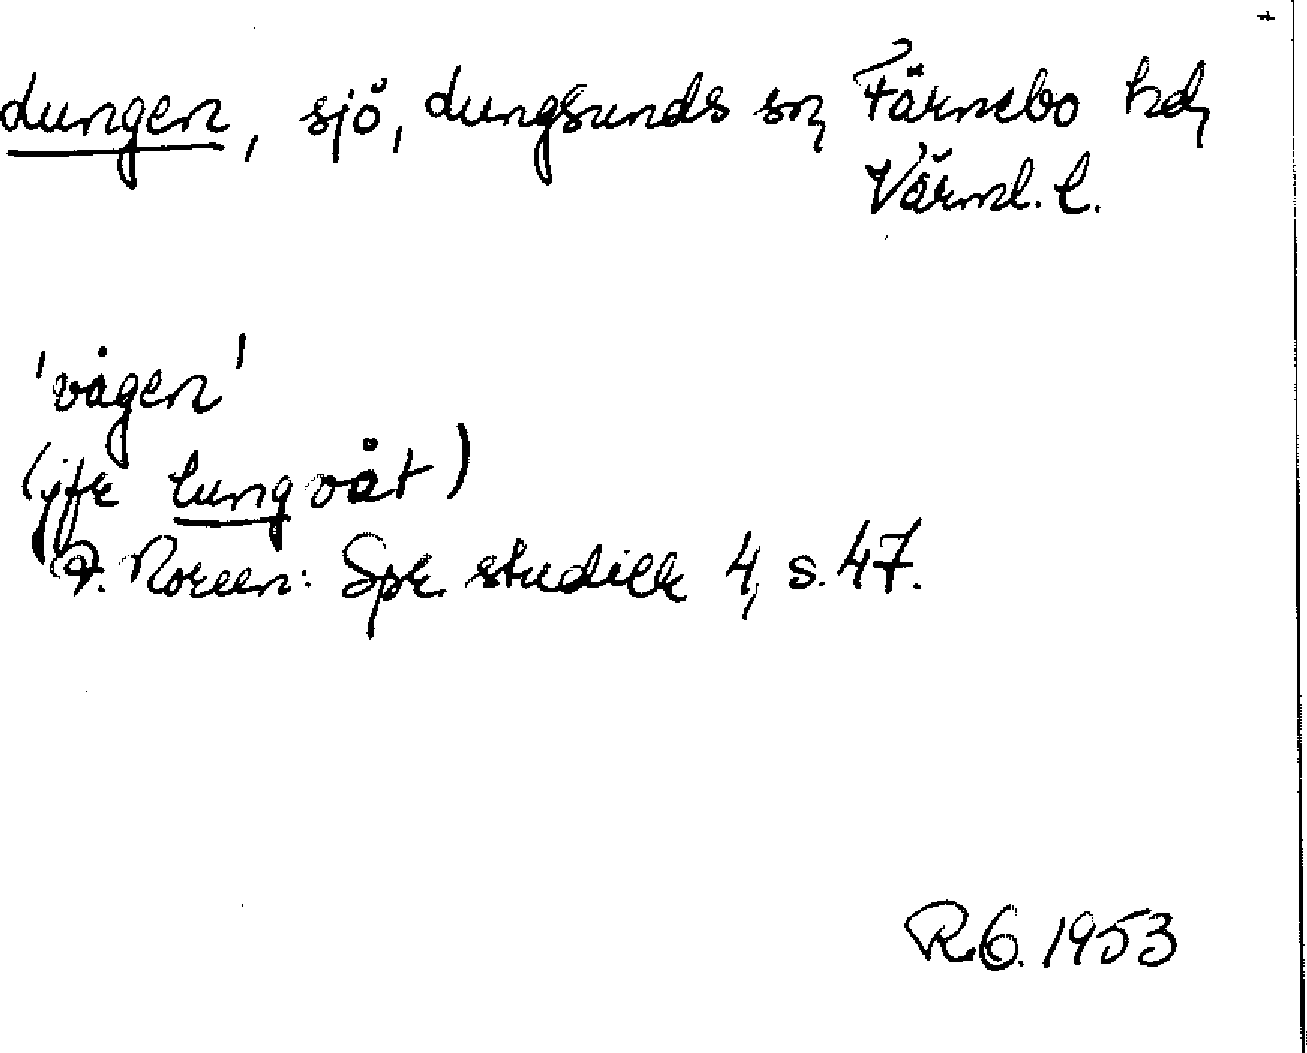 Lungen, sjö, Lungsunds sn, Färnebo hd,
Värml. l.
'vågen'
(jfr lungvåt)
A. Noreen: Spr. studier 4, s. 47.
R G. 1953